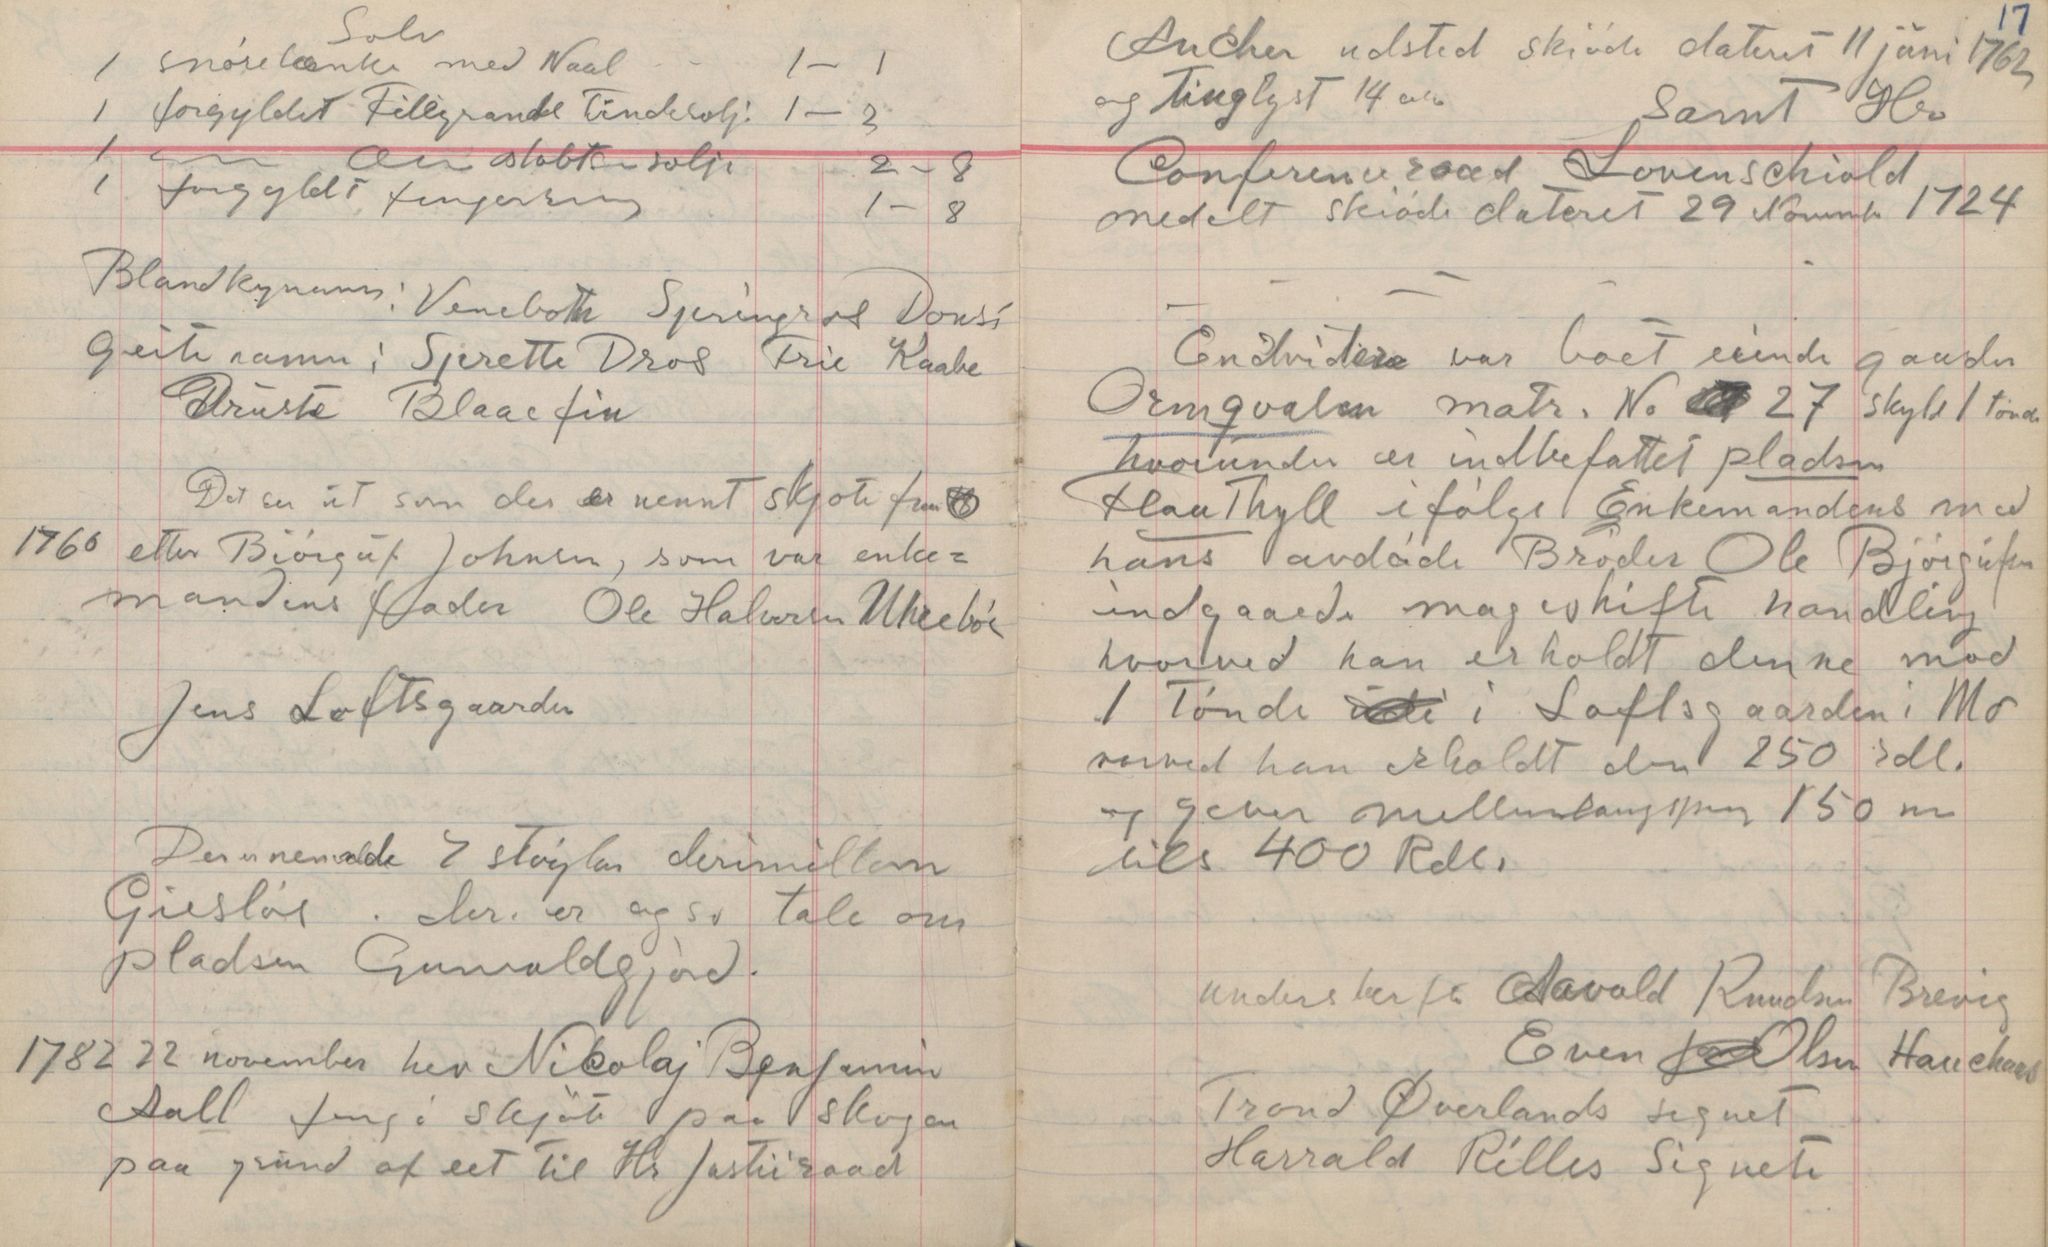 Sølv
1 snørelænke med Naal 1 - 1
1 forgyldet Filigrands Tindesølj: 1 - 3
1 støbt sølje 2 - 8
1 forgyldt fingerring 1 - 8
Blandkynamn: Venebot Springros Dousi
Geitenamn: Sprette Dros Frie Kaabe
Druste Blaaefin
Det ser ut som der er nemnt skjøte fraa
1760 etter Biörguf Johnsen, som var enke=
mandens fader Ole Halvorsen Uhrebøe
Jens Loftsgaarden
Der nemde 7 støylar derimillom
Giesløs. der er ogso tale om
pladsen Gunvaldgjord.
1782 22 november hev Nikolaj Benjamin
Aall skjøte paa skogen
paa grund af eet til Hr Justiiraad
17
Ancher udsted skiøde dateret 11 juni 1762
og Tinglyst 14 Samt Hr
Conferenceraad Lovenschiold
medelt skiøde dateret 29 Novemb 1724
Endvidere var boet eiende gaarden
Ormqvalen matr. No 27 skyld 1 tønde
hvorunder er indbefattet pladsen
HauThyll ifølge Enkemandens med
hans avdøde Broder Ole Bjørgufsen
indgaaede mageskifte handling
hvorved han erholdt denne mod
1 Tønde i Loftsgaarden i Mo
vorved han erholdt den 250 rdl.
og gever mellum 150
tils 400 Rdl.
underskr Aavald Knudsen Brevig
Even Olsen Hauchaas
Trond Øverlands signet
Harrald Rilles Signete